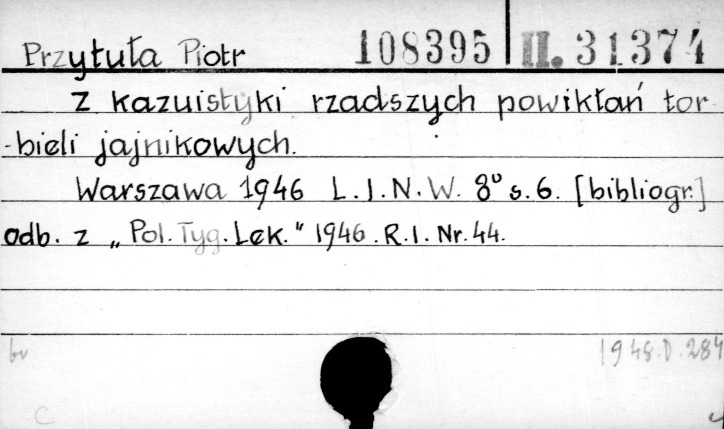 Przytuła Piotr 108395 II. 31374
Z kazuistyki rzadszych powikłań tor-
-bieli jajnikowych.
Warszawa 1946 L.I.N.W. 8° s. 6. [bibliogr.]
odb. z „Pol. Tyg. Lek." 1946. R.I. Nr. 44.
bv 1948.D.284
C